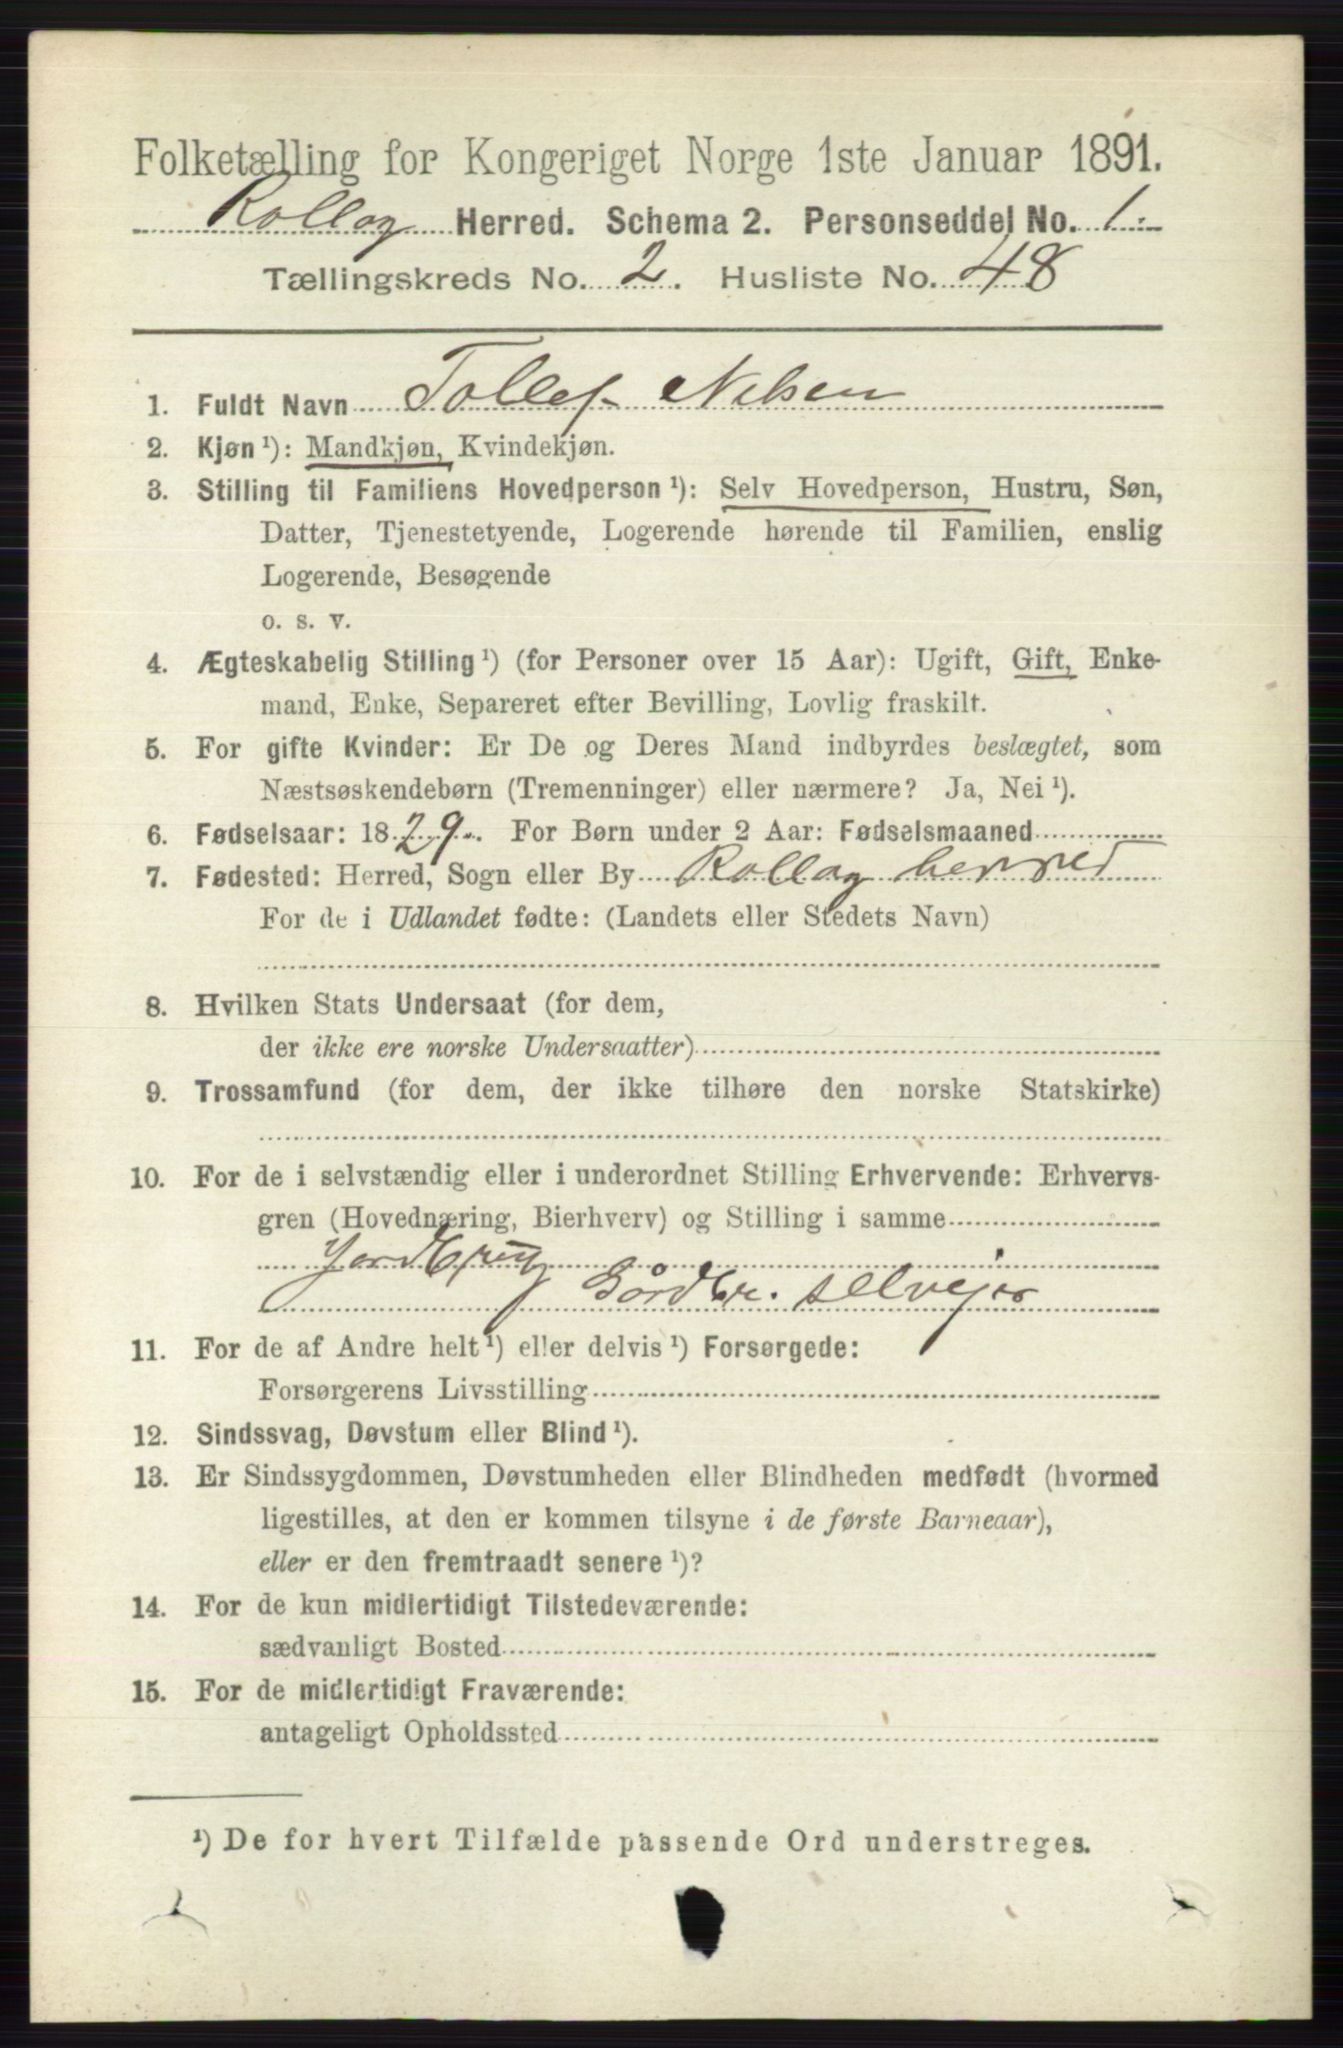 Folketælling for Kongeriget Norge 1ste Januar 1891.
Rollag Herred. Schema 2. Personseddel No. 1.
Tællingskreds No. 2. Husliste No. 48
1. Fuldt Navn Tollef Nilsen
2. Kjøn¹): Mandkjøn, Kvindekjøn.
3. Stilling til Familiens Hovedperson¹): Selv Hovedperson, Hustru, Søn,
Datter, Tjenestetyende, Logerende hørende til Familien, enslig
Logerende, Besøgende
o. s. v.
4. Ægteskabelig Stilling¹) (for Personer over 15 Aar): Ugift, Gift, Enke-
mand, Enke, Separeret efter Bevilling, Lovlig fraskilt.
5. For gifte Kvinder: Er De og Deres Mand indbyrdes beslægtet, som
Næstsøskendebørn (Tremenninger) eller nærmere? Ja, Nei¹).
6. Fødselsaar: 1829. For Børn under 2 Aar: Fødselsmaaned
7. Fødested: Herred, Sogn eller By Rollag herred
For de i Udlandet fødte: (Landets eller Stedets Navn)
8. Hvilken Stats Undersaat (for dem,
der ikke ere norske Undersaatter)
9. Trossamfund (for dem, der ikke tilhøre den norske Statskirke)
10. For de i selvstændig eller i underordnet Stilling Erhvervende: Erhvervs-
gren (Hovednæring, Bierhverv) og Stilling i samme
Jordbrug
Gårdbr. selvejer
11. For de af Andre helt¹) eller delvis¹) Forsørgede:
Forsørgerens Livsstilling
12. Sindssvag, Døvstum eller Blind¹).
13. Er Sindssygdommen, Døvstumheden eller Blindheden medfødt (hvormed
ligestilles, at den er kommen tilsyne i de første Barneaar),
eller er den fremtraadt senere¹)?
14. For de kun midlertidigt Tilstedeværende:
sædvanligt Bosted
15. For de midlertidigt Fraværende:
antageligt Opholdssted
¹) De for hvert Tilfælde passende Ord understreges.